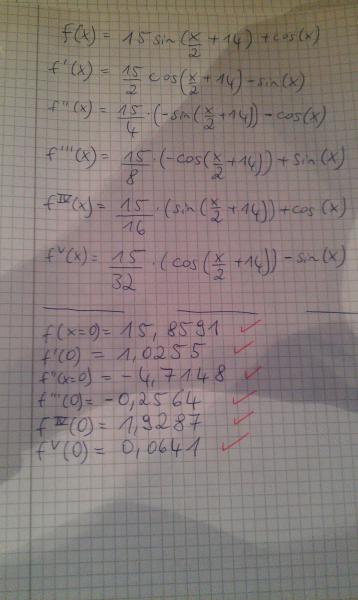 f(x) = 15 sin(x/2 + 14) + cos(x)
f'(x) = 15/2 cos(x/2 + 14) - sin(x)
f''(x) = 15/4 · (-sin(x/2 + 14)) - cos(x)
f'''(x) = 15/8 · (-cos(x/2 + 14)) + sin(x)
f^IV(x) = 15/16 · (sin(x/2 + 14)) + cos(x)
f^V(x) = 15/32 · (cos(x/2 + 14)) - sin(x)
f(x=0) = 15,8591 ✓
f'(0) = 1,0255 ✓
f''(x=0) = -4,7148 ✓
f'''(0) = -0,2564 ✓
f^IV(0) = 1,9287 ✓
f^V(0) = 0,0641 ✓